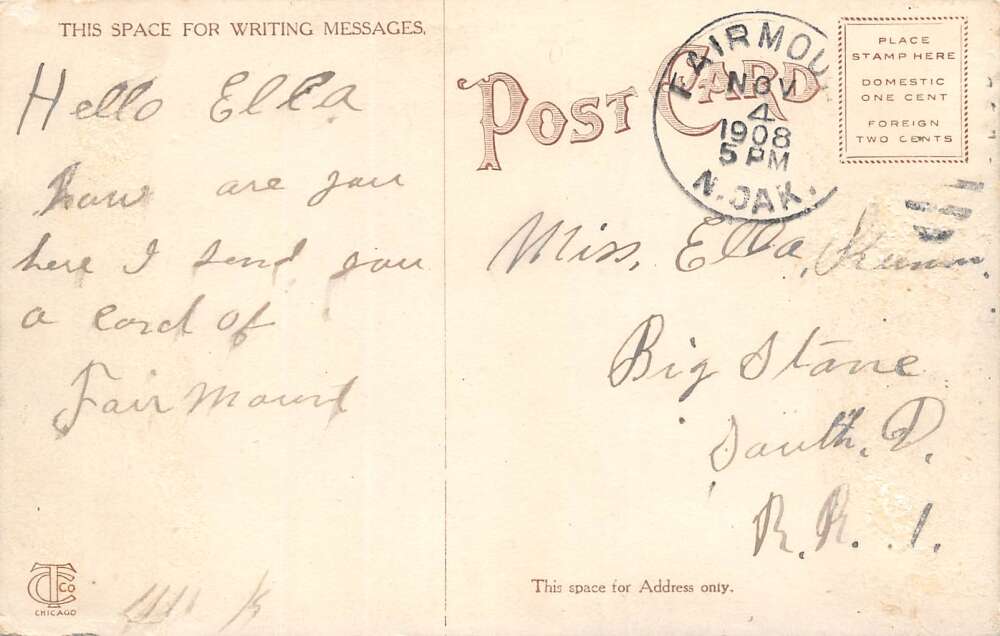 THIS SPACE FOR WRITING MESSAGES.
Hello Ella
how are you
here I send you
a card of
Fair Mount
K
TC CO
CHICAGO
POST CARD
FAIRMOU
NOV
4
1908
5 PM
N. DAK.
PLACE
STAMP HERE
DOMESTIC
ONE CENT
FOREIGN
TWO CENTS
Miss, Ella,
Big Stone
South, D,
R. R. 1.
This space for Address only.